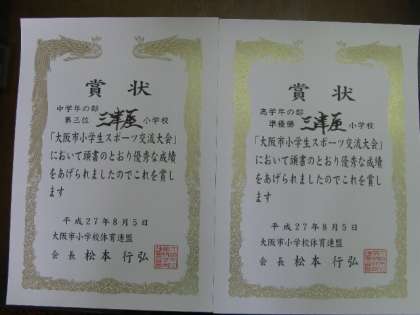 賞状
中学年の部
第三位 三津屋 小学校
「大阪市小学生スポーツ交流大会」
において頭書のとおり優秀な成績
をあげられましたのでこれを賞し
ます
平成27年8月5日
大阪市小学校体育連盟
会長 松本 行弘
賞状
高学年の部
準優勝 三津屋 小学校
「大阪市小学生スポーツ交流大会」
において頭書のとおり優秀な成績
をあげられましたのでこれを賞し
ます
平成27年8月5日
大阪市小学校体育連盟
会長 松本 行弘